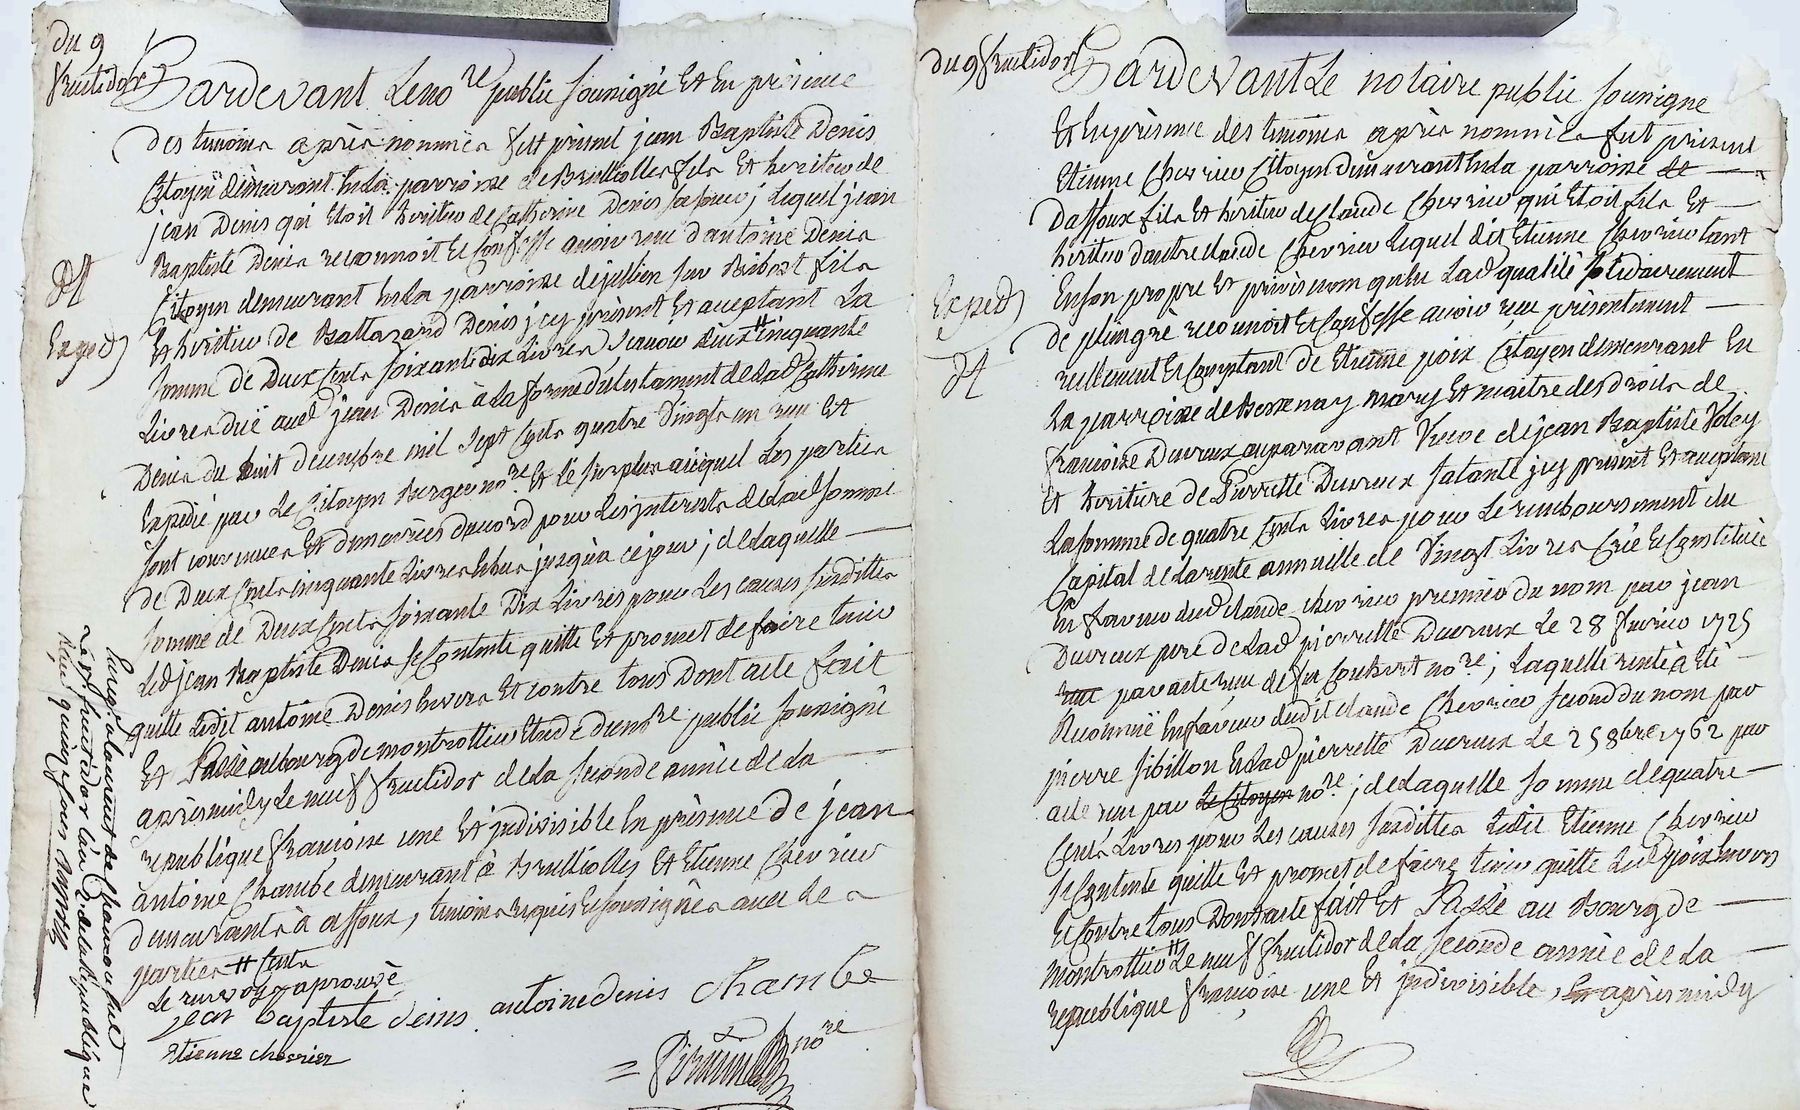 du 9
fructidor
Pardevant le no.re public soussigné Et En présence
des temoins après nommés fut présent jean Baptiste Denis
Citoyen demeurant En la parroisse de Brulliolles fils Et heritier de
jean Denis qui Etoit heritier de Catherine Denis sa soeur ; Lequel jean
Baptiste Denis reconnoit Et Confesse avoir reçu d'antoine Denis
Citoyen demeurant En la parroisse de jullien sur Bibost fils
Et heritier de Baltazard Denis jcy présent Et aceptant La
Expéd
somme de Deux Cents soixante dix Livres scavoir deux # cinquante
Livres düe aud jean Denis à La forme du testament de Lad Catherine
Denis du huit decembre mil sept Cents quatre vingts un reçu Et
Expédié par Le Citoyen Berger no.re Et le surplus auquel Les parties
sont convenues Et demeurées dacord pour Les interets de Lad somme
de Deux Cents cinquante Livres Echus jusqu'à ce jour ; de Laquelle —
somme de Deux Cents soixante Dix Livres pour Les causes susdittes
Led jean Baptiste Denis se Contente quitte Et promet de faire tenir
quitte Ledit antoine Denis Envers Et contre tous Dont acte fait
Et Passé au bourg de montrottier Etude du no.re public soussigné
après midy Le neuf fructidor de la seconde année de la —
republique françoise une Et jndivisible En présence de jean
antoine Chambe demeurant à Brulliolles Et Etienne Chevrier
demeurants à affoux, temoins requis Et soussignés avec Le s
parties # Cents
Le renvoy aprouvé
jean baptiste denis antoine denis Chambe
Etienne chevrier
no.re
Enreg. a laurent de chamousset
Le 17 fructidor l'an 2 de la République
Reçu quinze sous
du 9 fructidor
Pardevant Le notaire public soussigné
Et En présence des temoins après nommés fut présent
Etienne Chevrier Citoyen demeurant En la parroisse de —
D'affoux fils Et heritier de Claude Chevrier qui Etoit fils Et —
heritier d'autre Claude Chevrier Lequel dit Etienne Chevrier tant
Expéd
En son propre Et privé nom qu'en Lad qualité solidairement
de plein gré reconnoit Et Confesse avoir reçu présentement —
reellement Et Comptant de Etienne poix Citoyen demeurant En
La parroisse de Bessenay mary Et maitre des droits de
francoise Ducreux auparavant Veuve de jean Baptiste Voley
Et heritiere de Pierrette Ducreux sa tante jcy présent Et aceptant
La somme de quatre Cents Livres pour Le remboursement du
Capital de La rente annuelle de Vingt Livres Crée Et Constituée
En faveur dud Claude Chevrier premier du nom par jean
Ducreux pere de Lad pierrette Ducreux Le 28 fevrier 1725
par acte reçu de feu no.re ; Laquelle rente a Eté —
Reconnüe En faveur dudit Claude Chevrier second du nom par
pierre sibillon Et Lad pierrette Ducreux Le 25 8bre 1762 par
acte reçu par Le Citoyen no.re ; de Laquelle somme de quatre —
Cents Livres pour Les causes susdittes Ledit Etienne Chevrier
se Contente quitte Et promet de faire tenir quitte Led poix Envers
Et Contre tous Dont acte fait Et Passé au Bourg de —
montrottier # Le neuf fructidor de la seconde année de la —
republique françoise une Et jndivisible, après midy